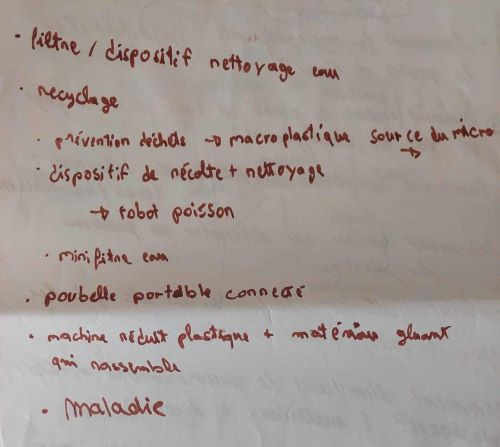 · filtre / dispositif nettoyage eau
· recyclage
· prévention déchets → macroplastique source du micro
→
· dispositif de récolte + nettoyage
→ robot poisson
· mini filtre eau
· poubelle portable connecté
· machine réduit plastique + matériau gluant
qui rassemble
· Maladie